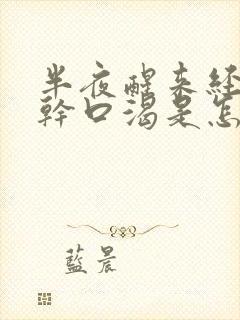 半夜醒来经
幹口渴是怎
藍晨